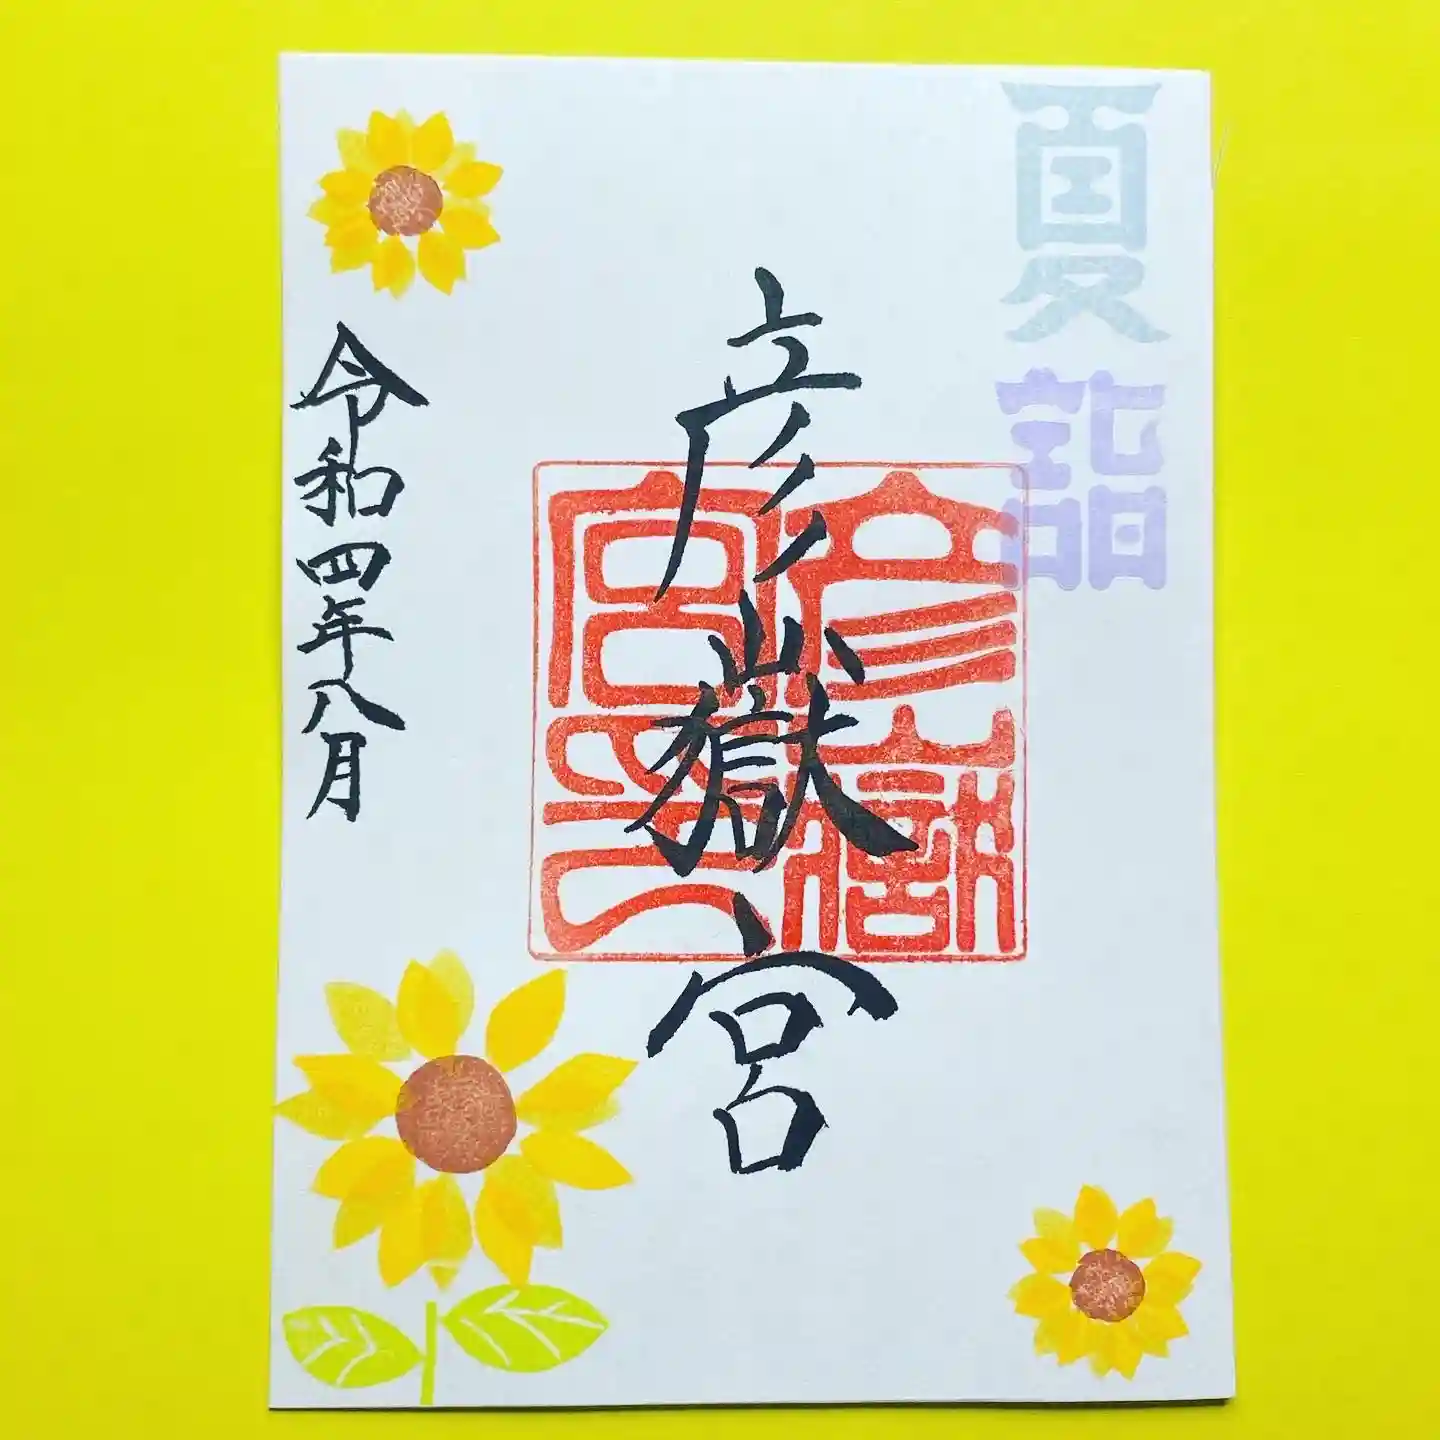 夏詣
彦嶽宮
彦嶽宮之印
令和四年八月